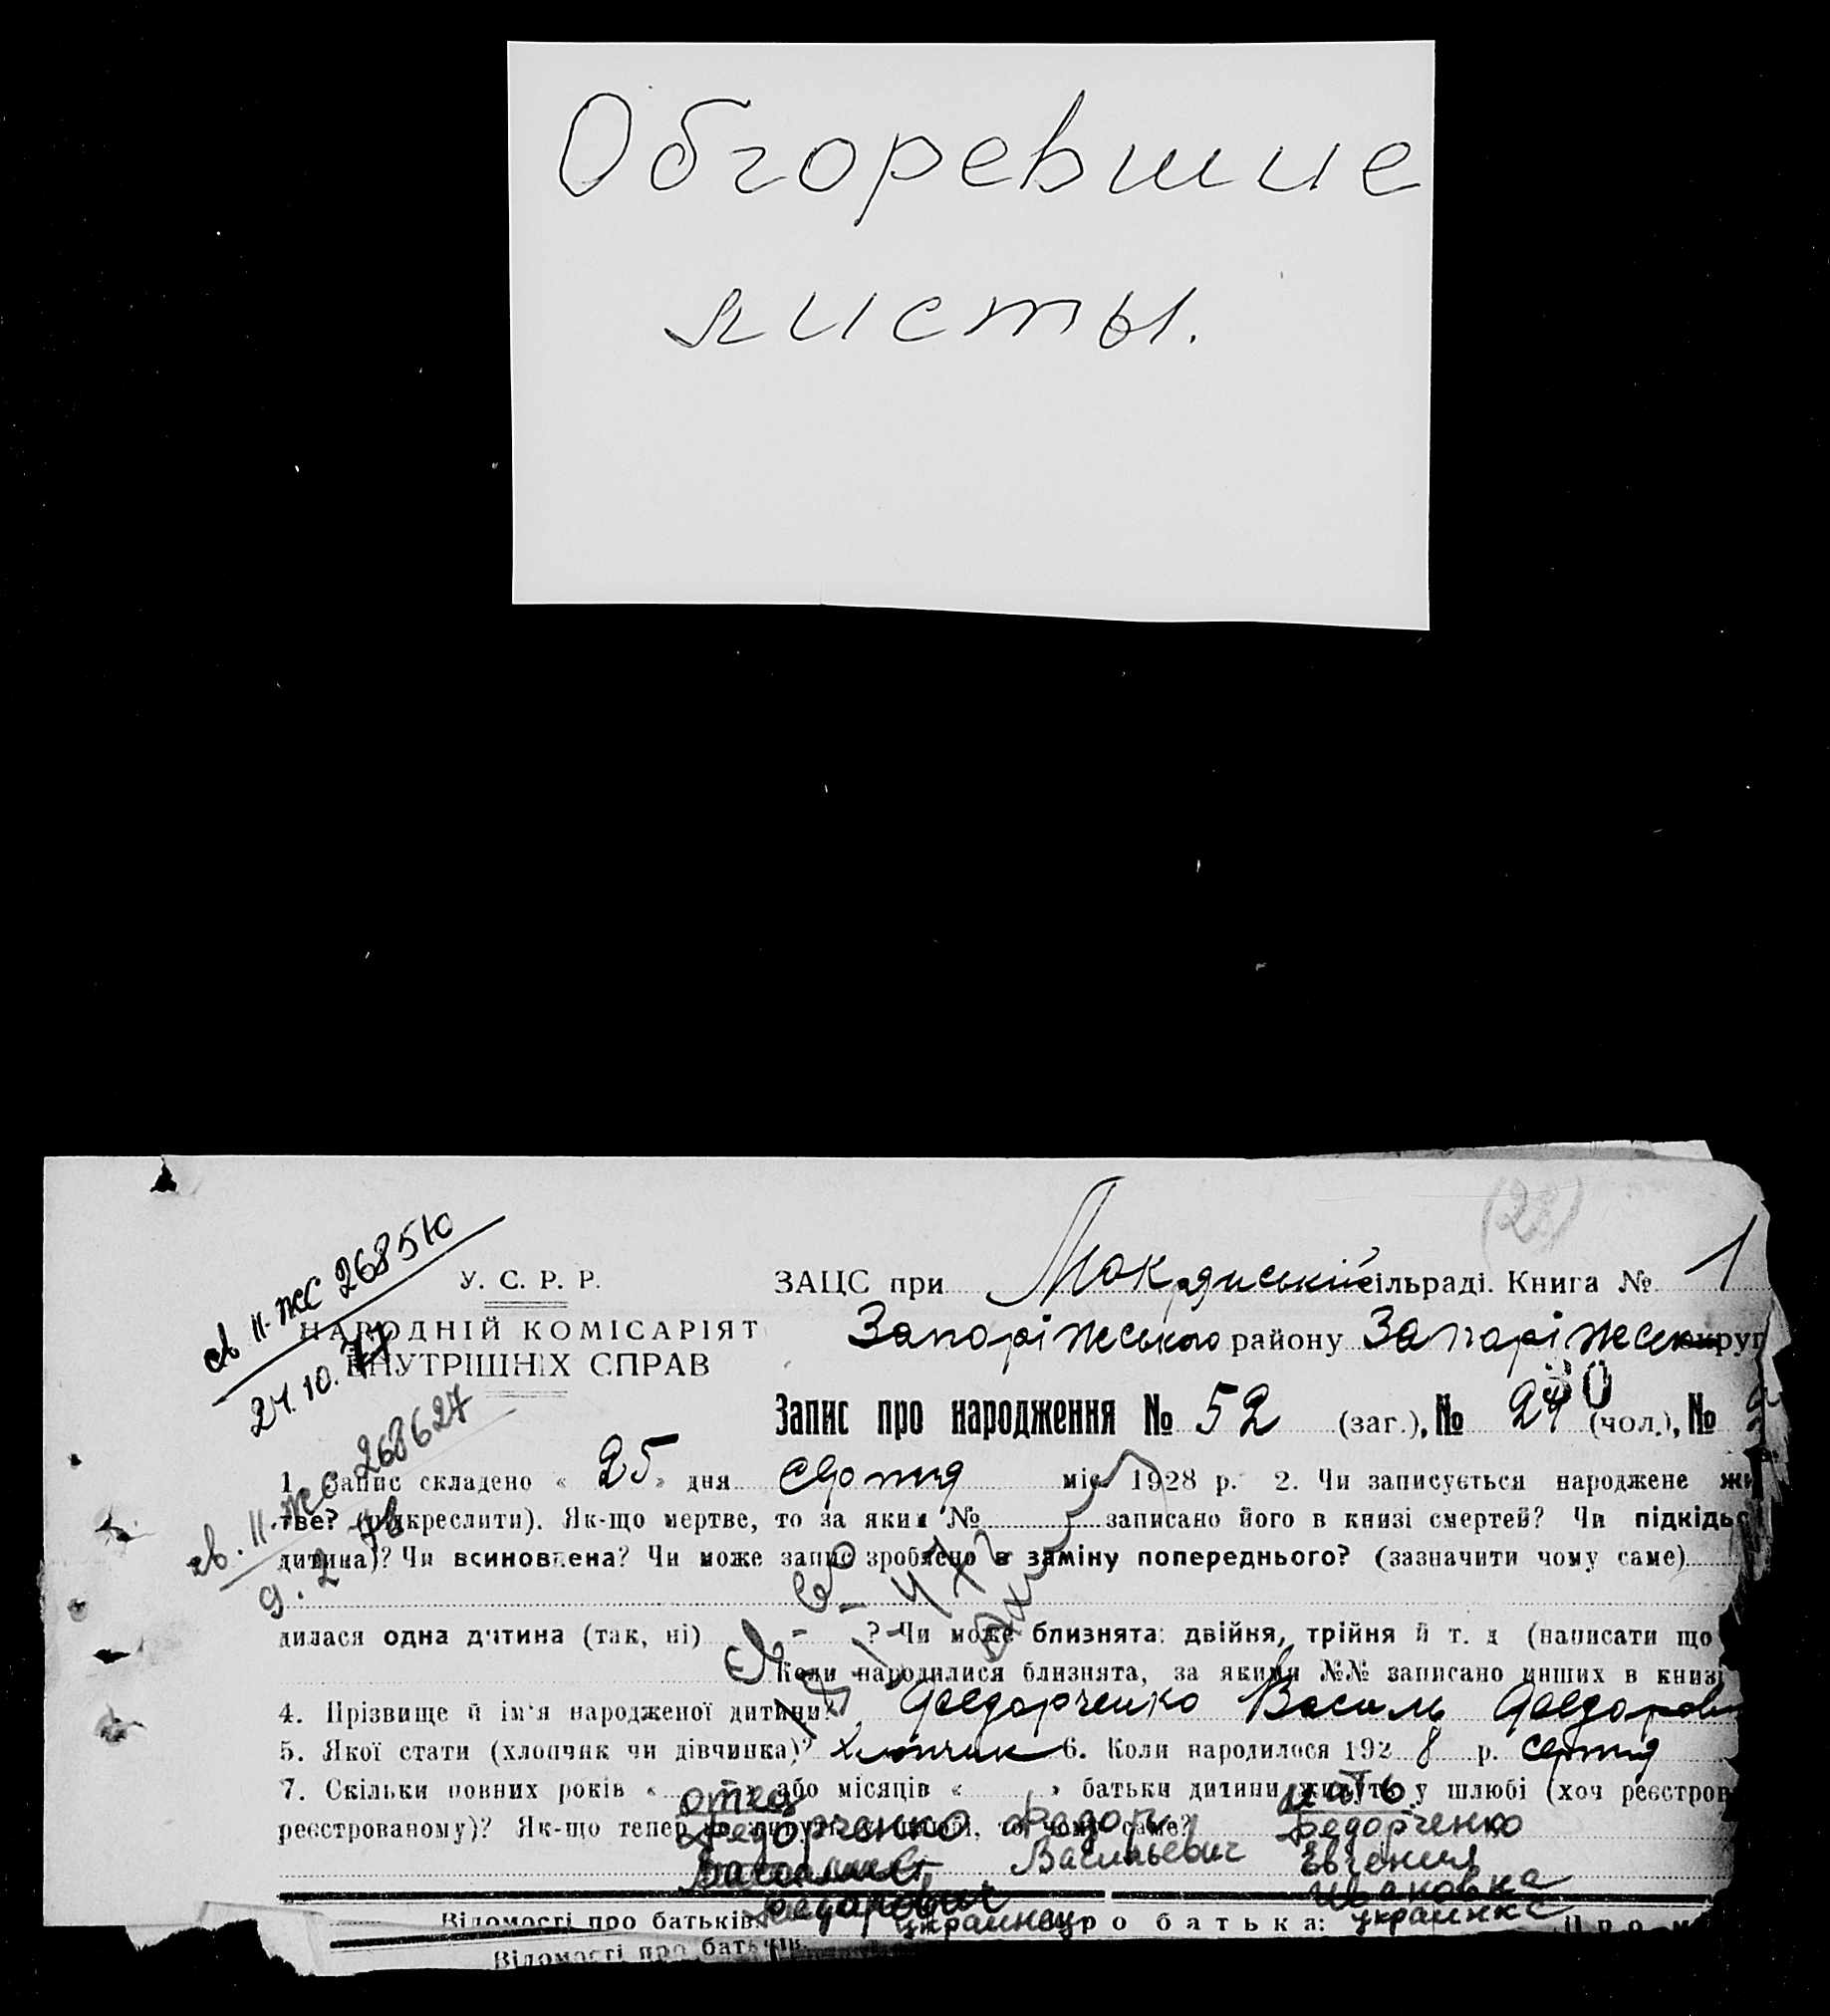 Обгоревшие
листы.
(28)
св. II-ЖС 268510
24.10.77
У. С. Р. Р.
НАРОДНІЙ КОМІСАРІЯТ
ВНУТРІШНІХ СПРАВ
ЗАЦС при сільраді. Книга № 1
Запоріжського району Запоріжськ округ
Запис про народження № 52 (заг.), № (чол.), №
св. II-ЖС 268627
1. Запис складено « 25 » дня серпня міс 1928 р. 2. Чи записується народжене жи
тве? (підкреслити). Як-що мертве, то за яким № записано його в книзі смертей? Чи підкідьо
дитина)? Чи всиновлена? Чи може запис зроблено в заміну попереднього? (зазначити чому саме)
дилася одна дитина (так, ні) ? Чи може близнята: двійня, трійня й т. д (написати що
Коли народилися близнята, за якими №№ записано инших в книзі
4. Прізвище й ім'я народженої дитини? Федорченко Василь Федорови
5. Якої стати (хлопчик чи дівчинка)? хлопчик 6. Коли народилося 192 8 р. серпня
7. Скільки повних років « » або місяців « » батьки дитини живуть у шлюбі (хоч реєстров
отец мать
реєстрованому)? Як-що тепер не живуть у шлюбі, то чому саме?
Федорченко Федор Федорченко
Васильевич Евгения
Ивановна
украинец украинка
Відомості про батьків Про батька: Про м
Відомості про батьків